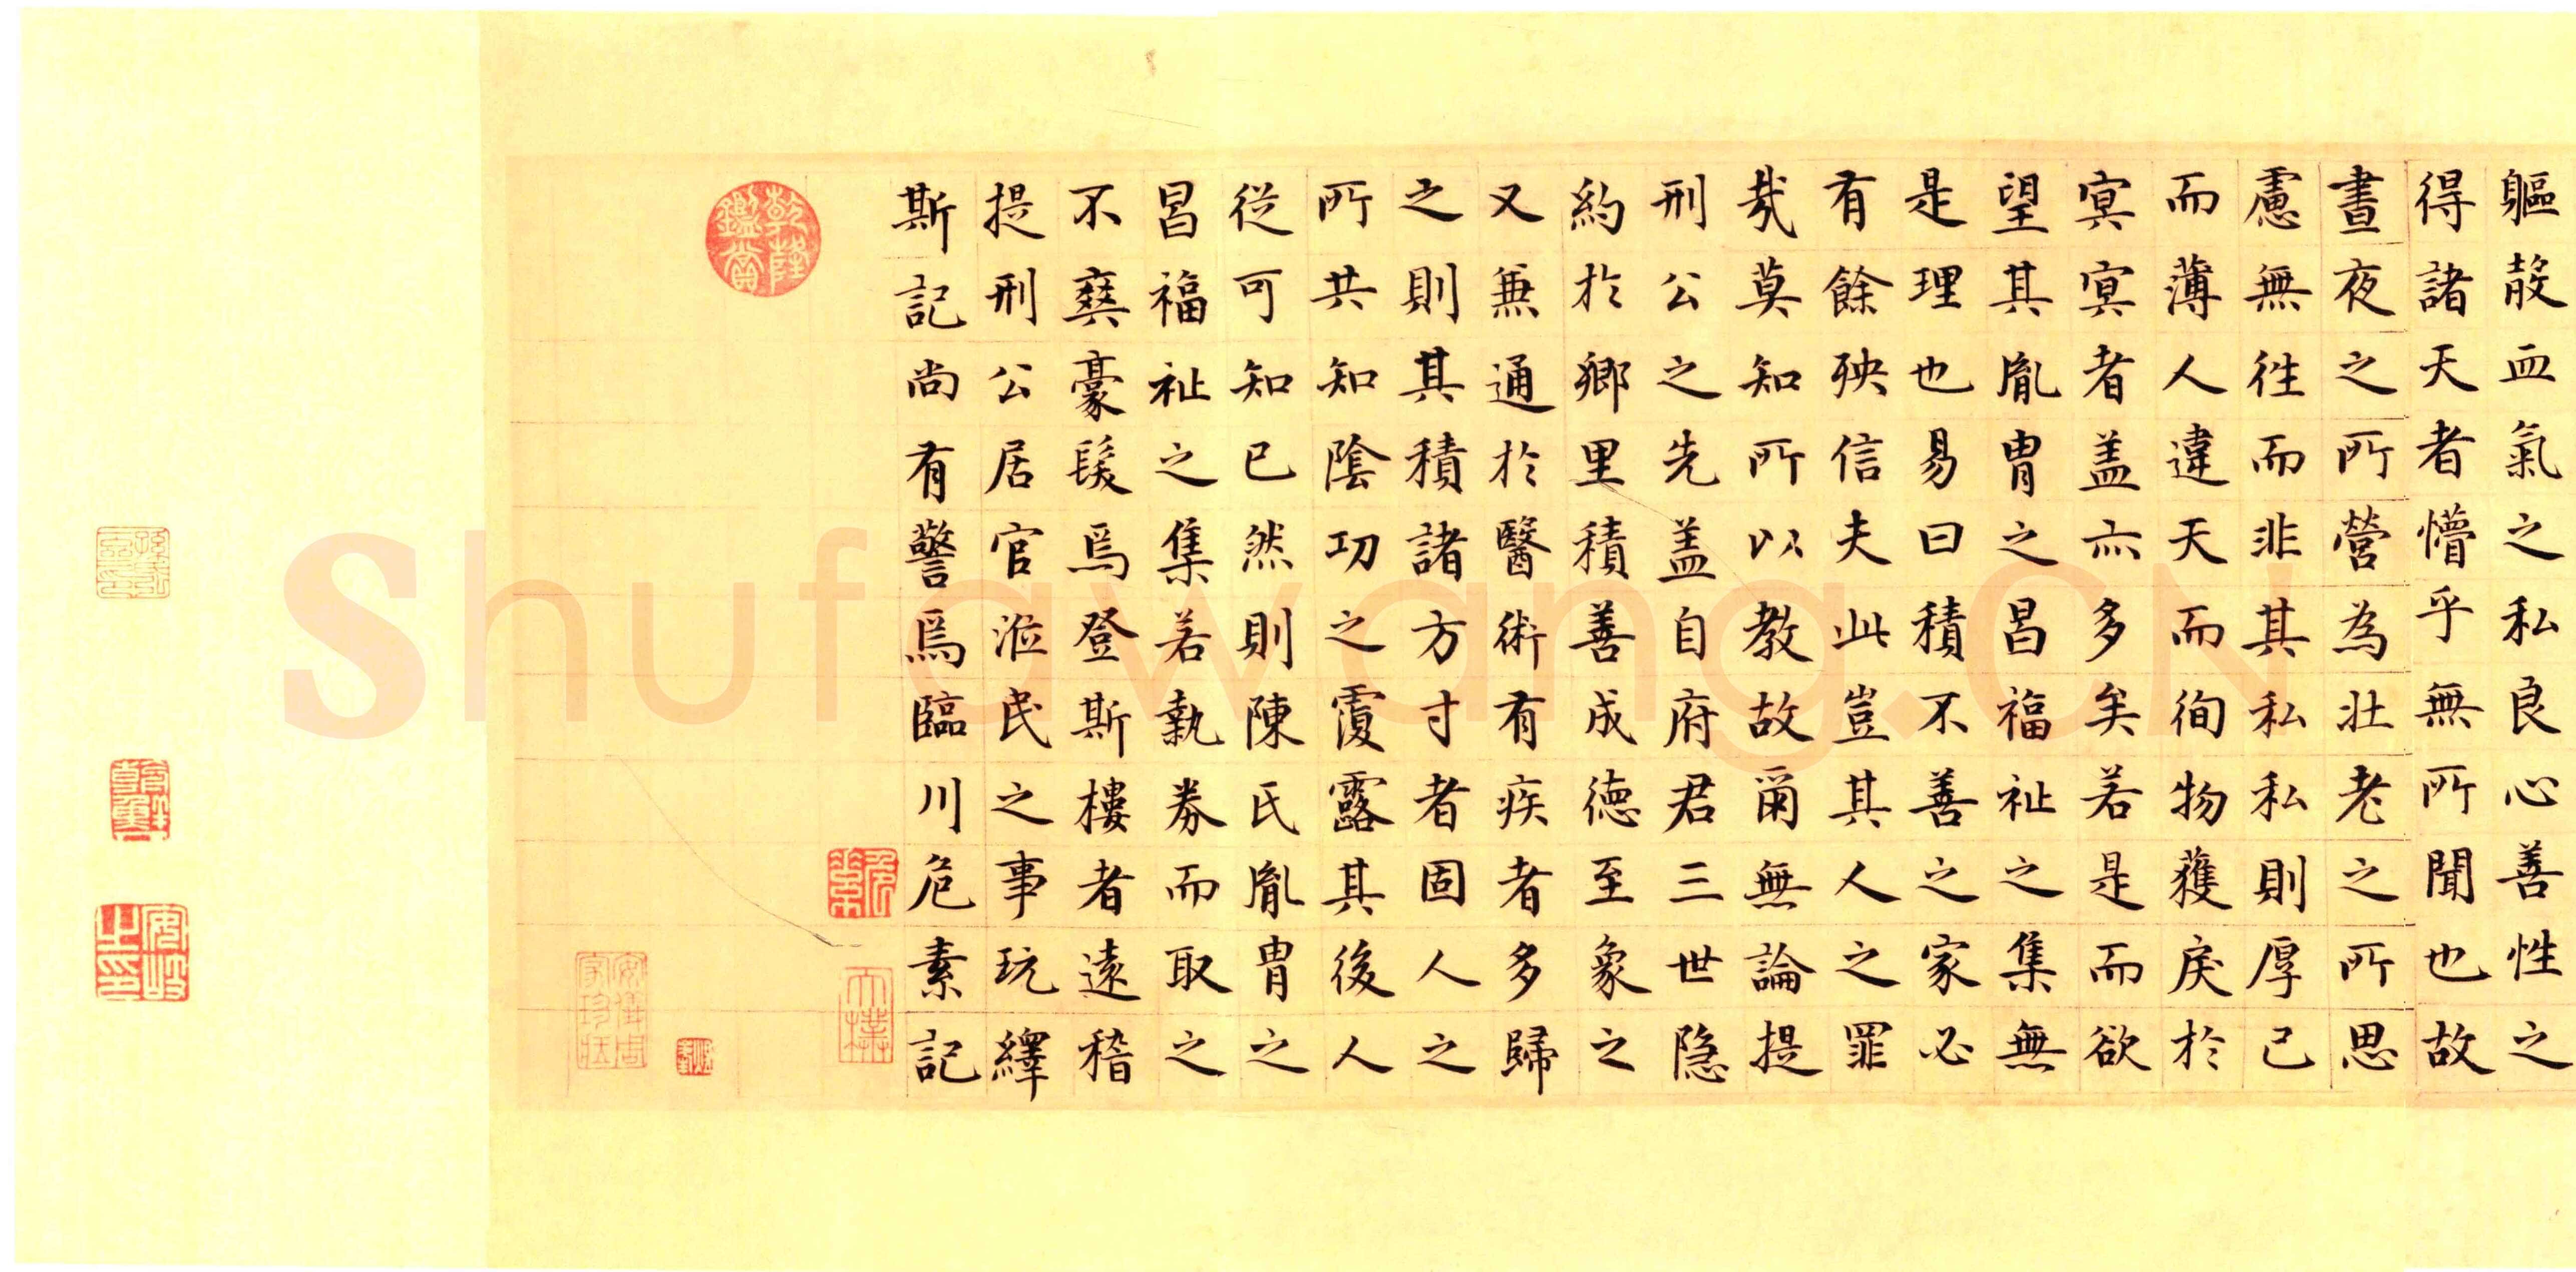 軀殼血氣之私良心善性之
得諸天者懵乎無所聞也故
晝夜之所營為壯老之所思
慮無徃而非其私私則厚己
而薄人違天而徇物獲戾於
冥冥者盖亦多矣若是而欲
望其胤胄之昌福祉之集無
是理也易曰積不善之家必
有餘殃信夫此豈其人之罪
㢤莫知所以教故爾無論提
刑公之先盖自府君三世隐
約於鄉里積善成德至象之
又兼通於醫術有疾者多歸
之則其積諸方寸者固人之
所共知陰功之覆露其後人
從可知已然則陳氏胤胄之
昌福祉之集若執券而取之
不爽豪髮焉登斯樓者遠稽
提刑公居官涖民之事玩繹
斯記尚有警焉臨川危素記
乾隆鑑賞
安儀周家珍藏
安岐之印
Shufawang.CN